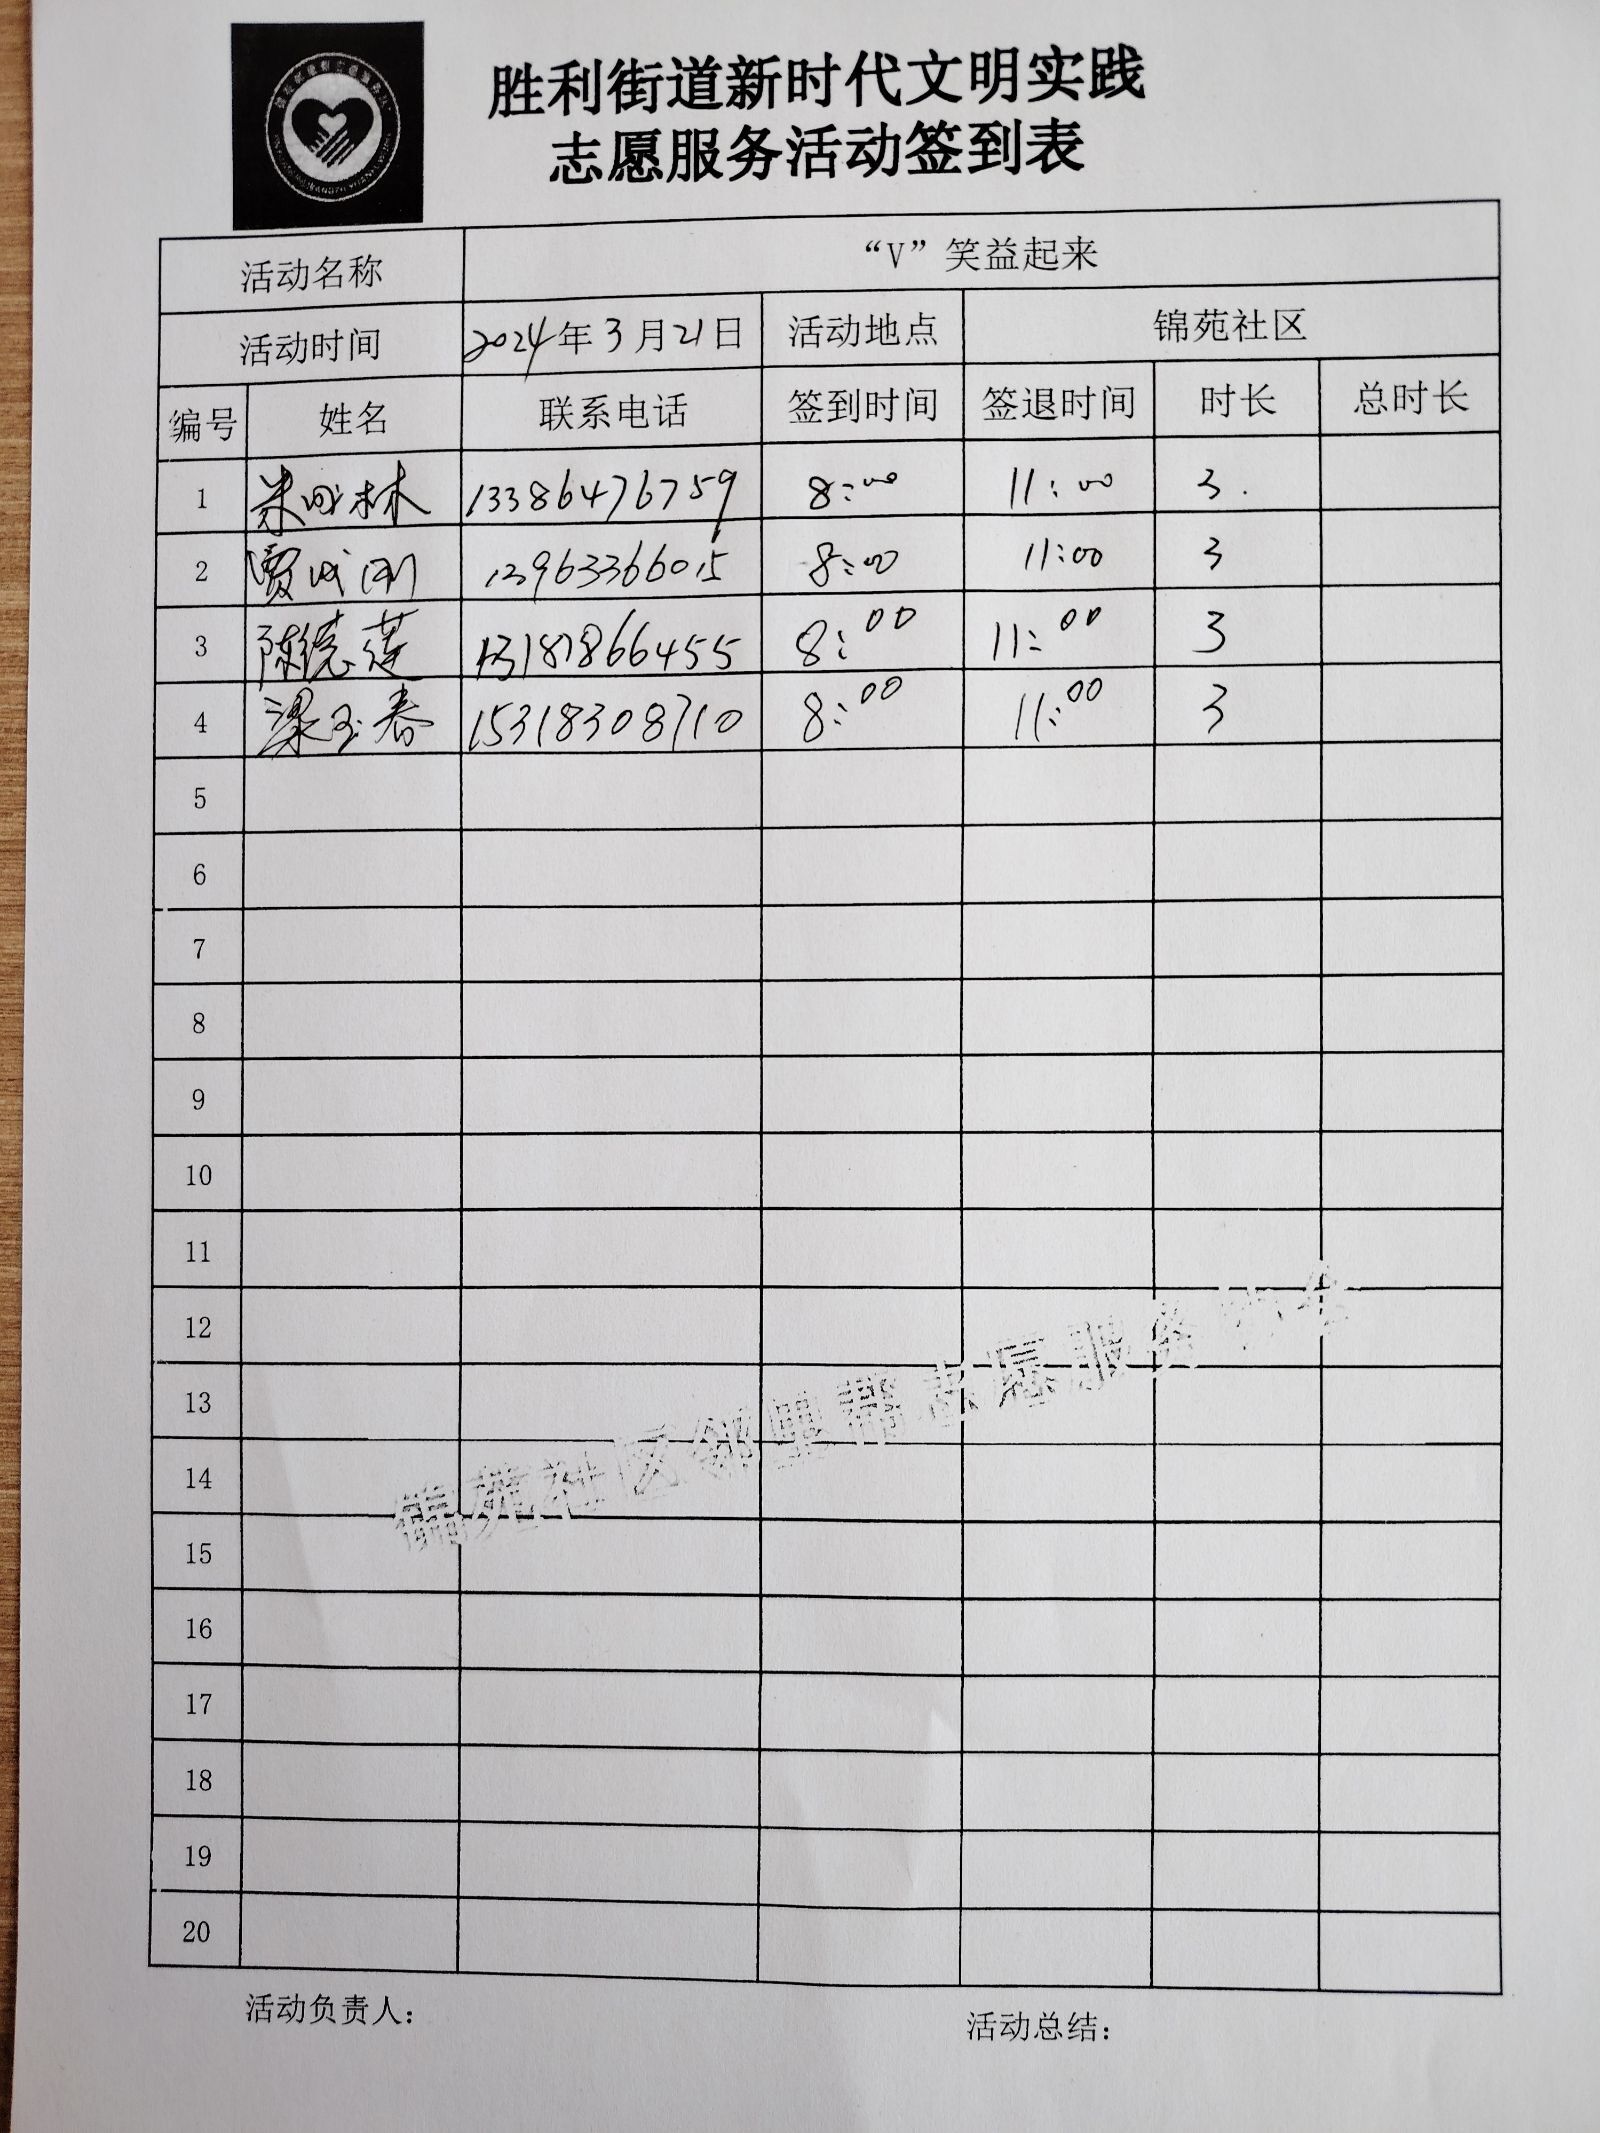 胜利街道新时代文明实践
志愿服务活动签到表
活动名称 “V”笑益起来
活动时间 2024年3月21日 活动地点 锦苑社区
编号 姓名 联系电话 签到时间 签退时间 时长 总时长
1 林 13386476759 8:00 11:00 3.
2 贾成刚 13963366015 8:00 11:00 3
3 陈德莲 13181866455 8:00 11:00 3
4 梁玉春 15318308710 8:00 11:00 3
5
6
7
8
9
10
11
12
13
14
15
16
17
18
19
20
锦苑社区邻里帮志愿服务协会
活动负责人:
活动总结: